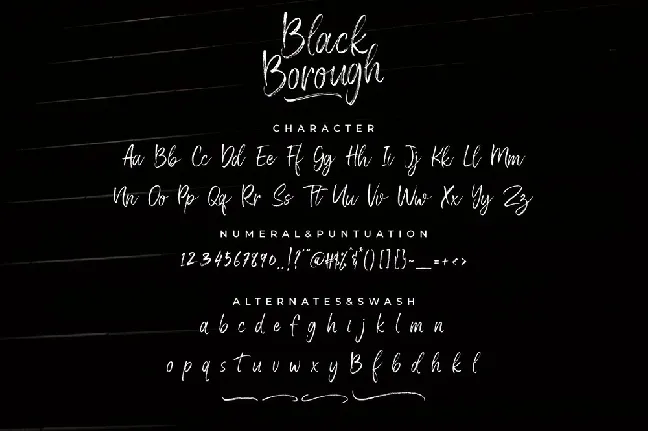 Black
Borough
CHARACTER
Aa Bb Cc Dd Ee Ff Gg Hh Ii Jj Kk Ll Mm
Nn Oo Pp Qq Rr Ss Tt Uu Vv Ww Xx Yy Zz
NUMERAL&PUNTUATION
1234567890.,!?"@#$%^&*()[]{}-_=+<>
ALTERNATES&SWASH
a b c d e f g h i j k l m n
o p q s t u v w x y B f b d h k l